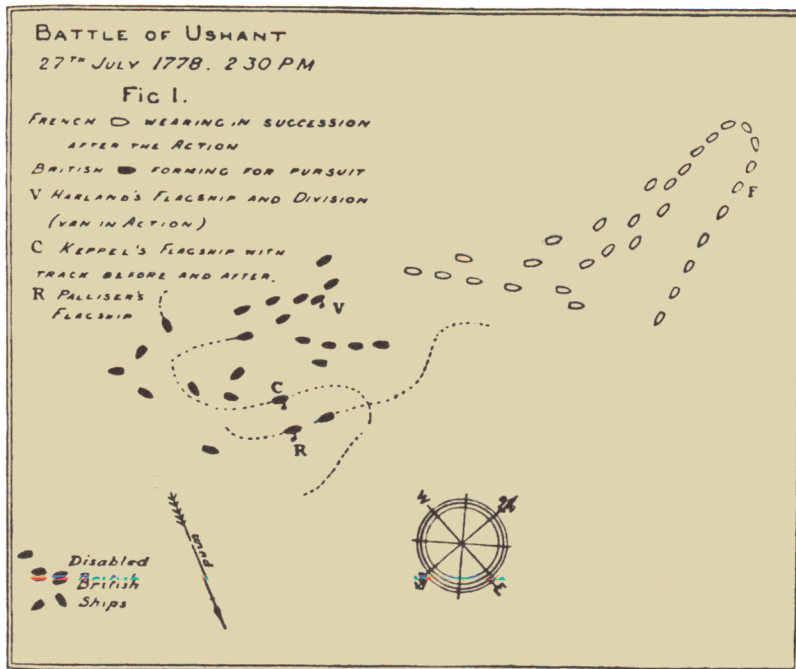 BATTLE OF USHANT
27TH JULY 1778. 2 30 PM
FIG 1.
FRENCH WEARING IN SUCCESSION
AFTER THE ACTION
BRITISH FORMING FOR PURSUIT
V HARLAND'S FLAGSHIP AND DIVISION
(VAN IN ACTION)
C KEPPEL'S FLAGSHIP WITH
TRACK BEFORE AND AFTER.
R PALLISER'S
FLAGSHIP
F
V
C
R
wind
W
E
Disabled
British
British
Ships